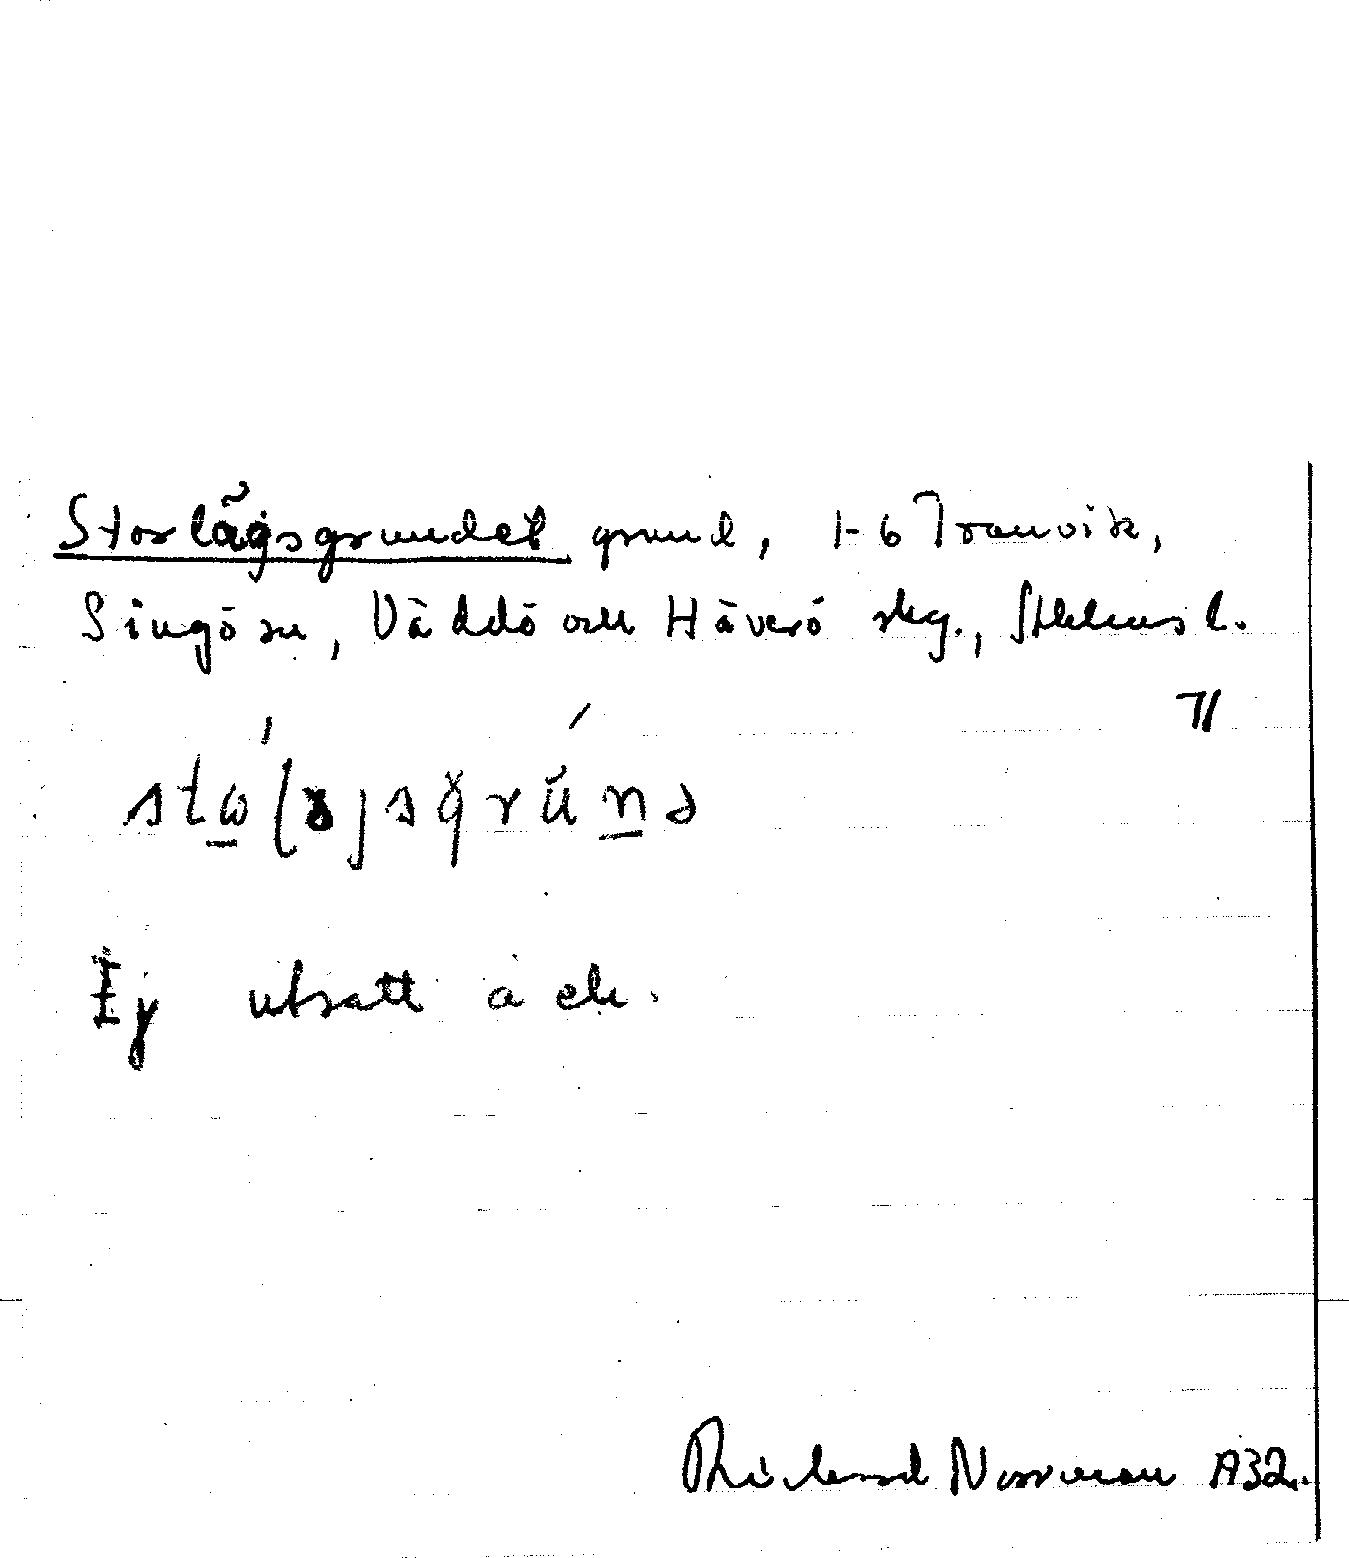 Storlågsgrundet grund, 1-6 Tranvik,
Singö sn, Väddö och Häverö skg., Sthlms l.
Ej utsatt å ek.
Rickard Norrman A32.